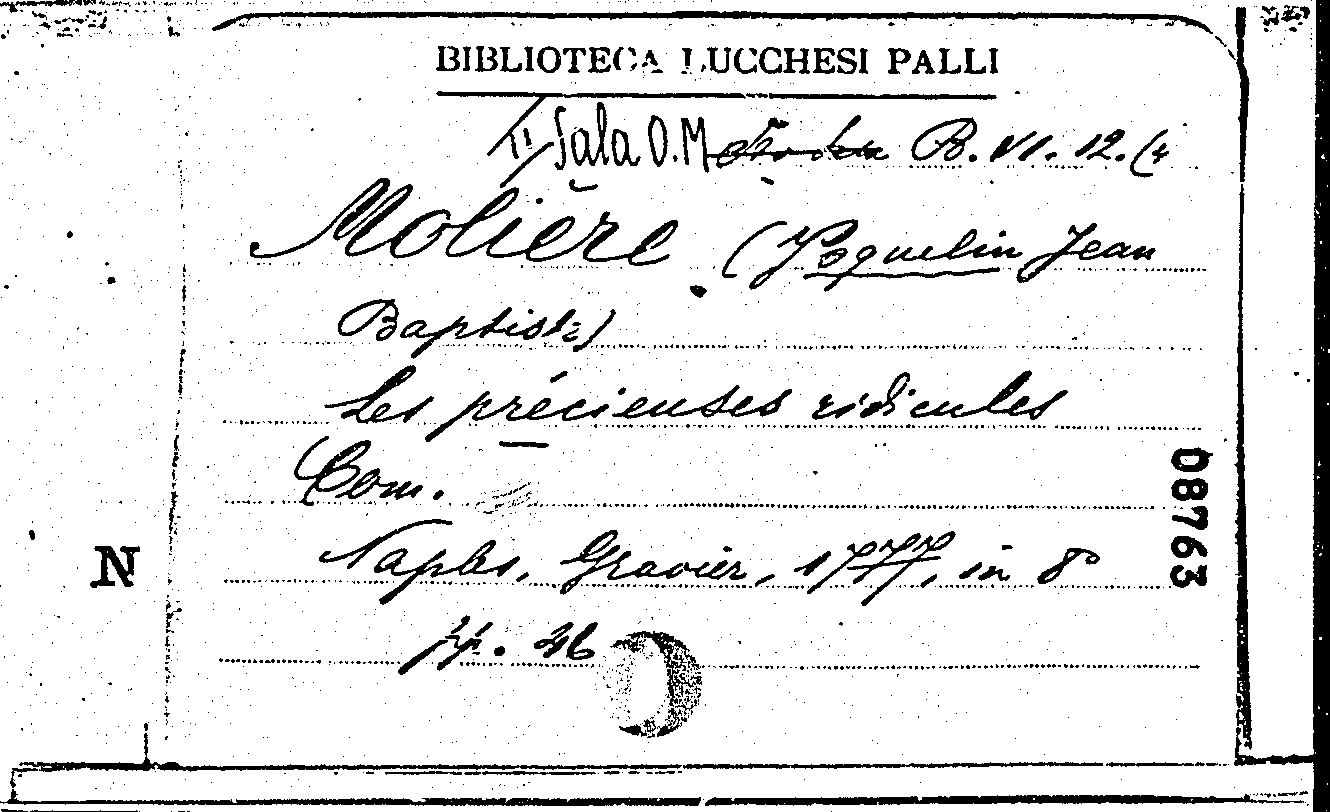 BIBLIOTECA LUCCHESI PALLI
II Sala O.M. B. VI. 12. (4
Molière (Poquelin Jean
Baptiste)
Les précieuses ridicules
Com.
Naples, Gravier, 1777, in 8º
pp. 46
N
08763